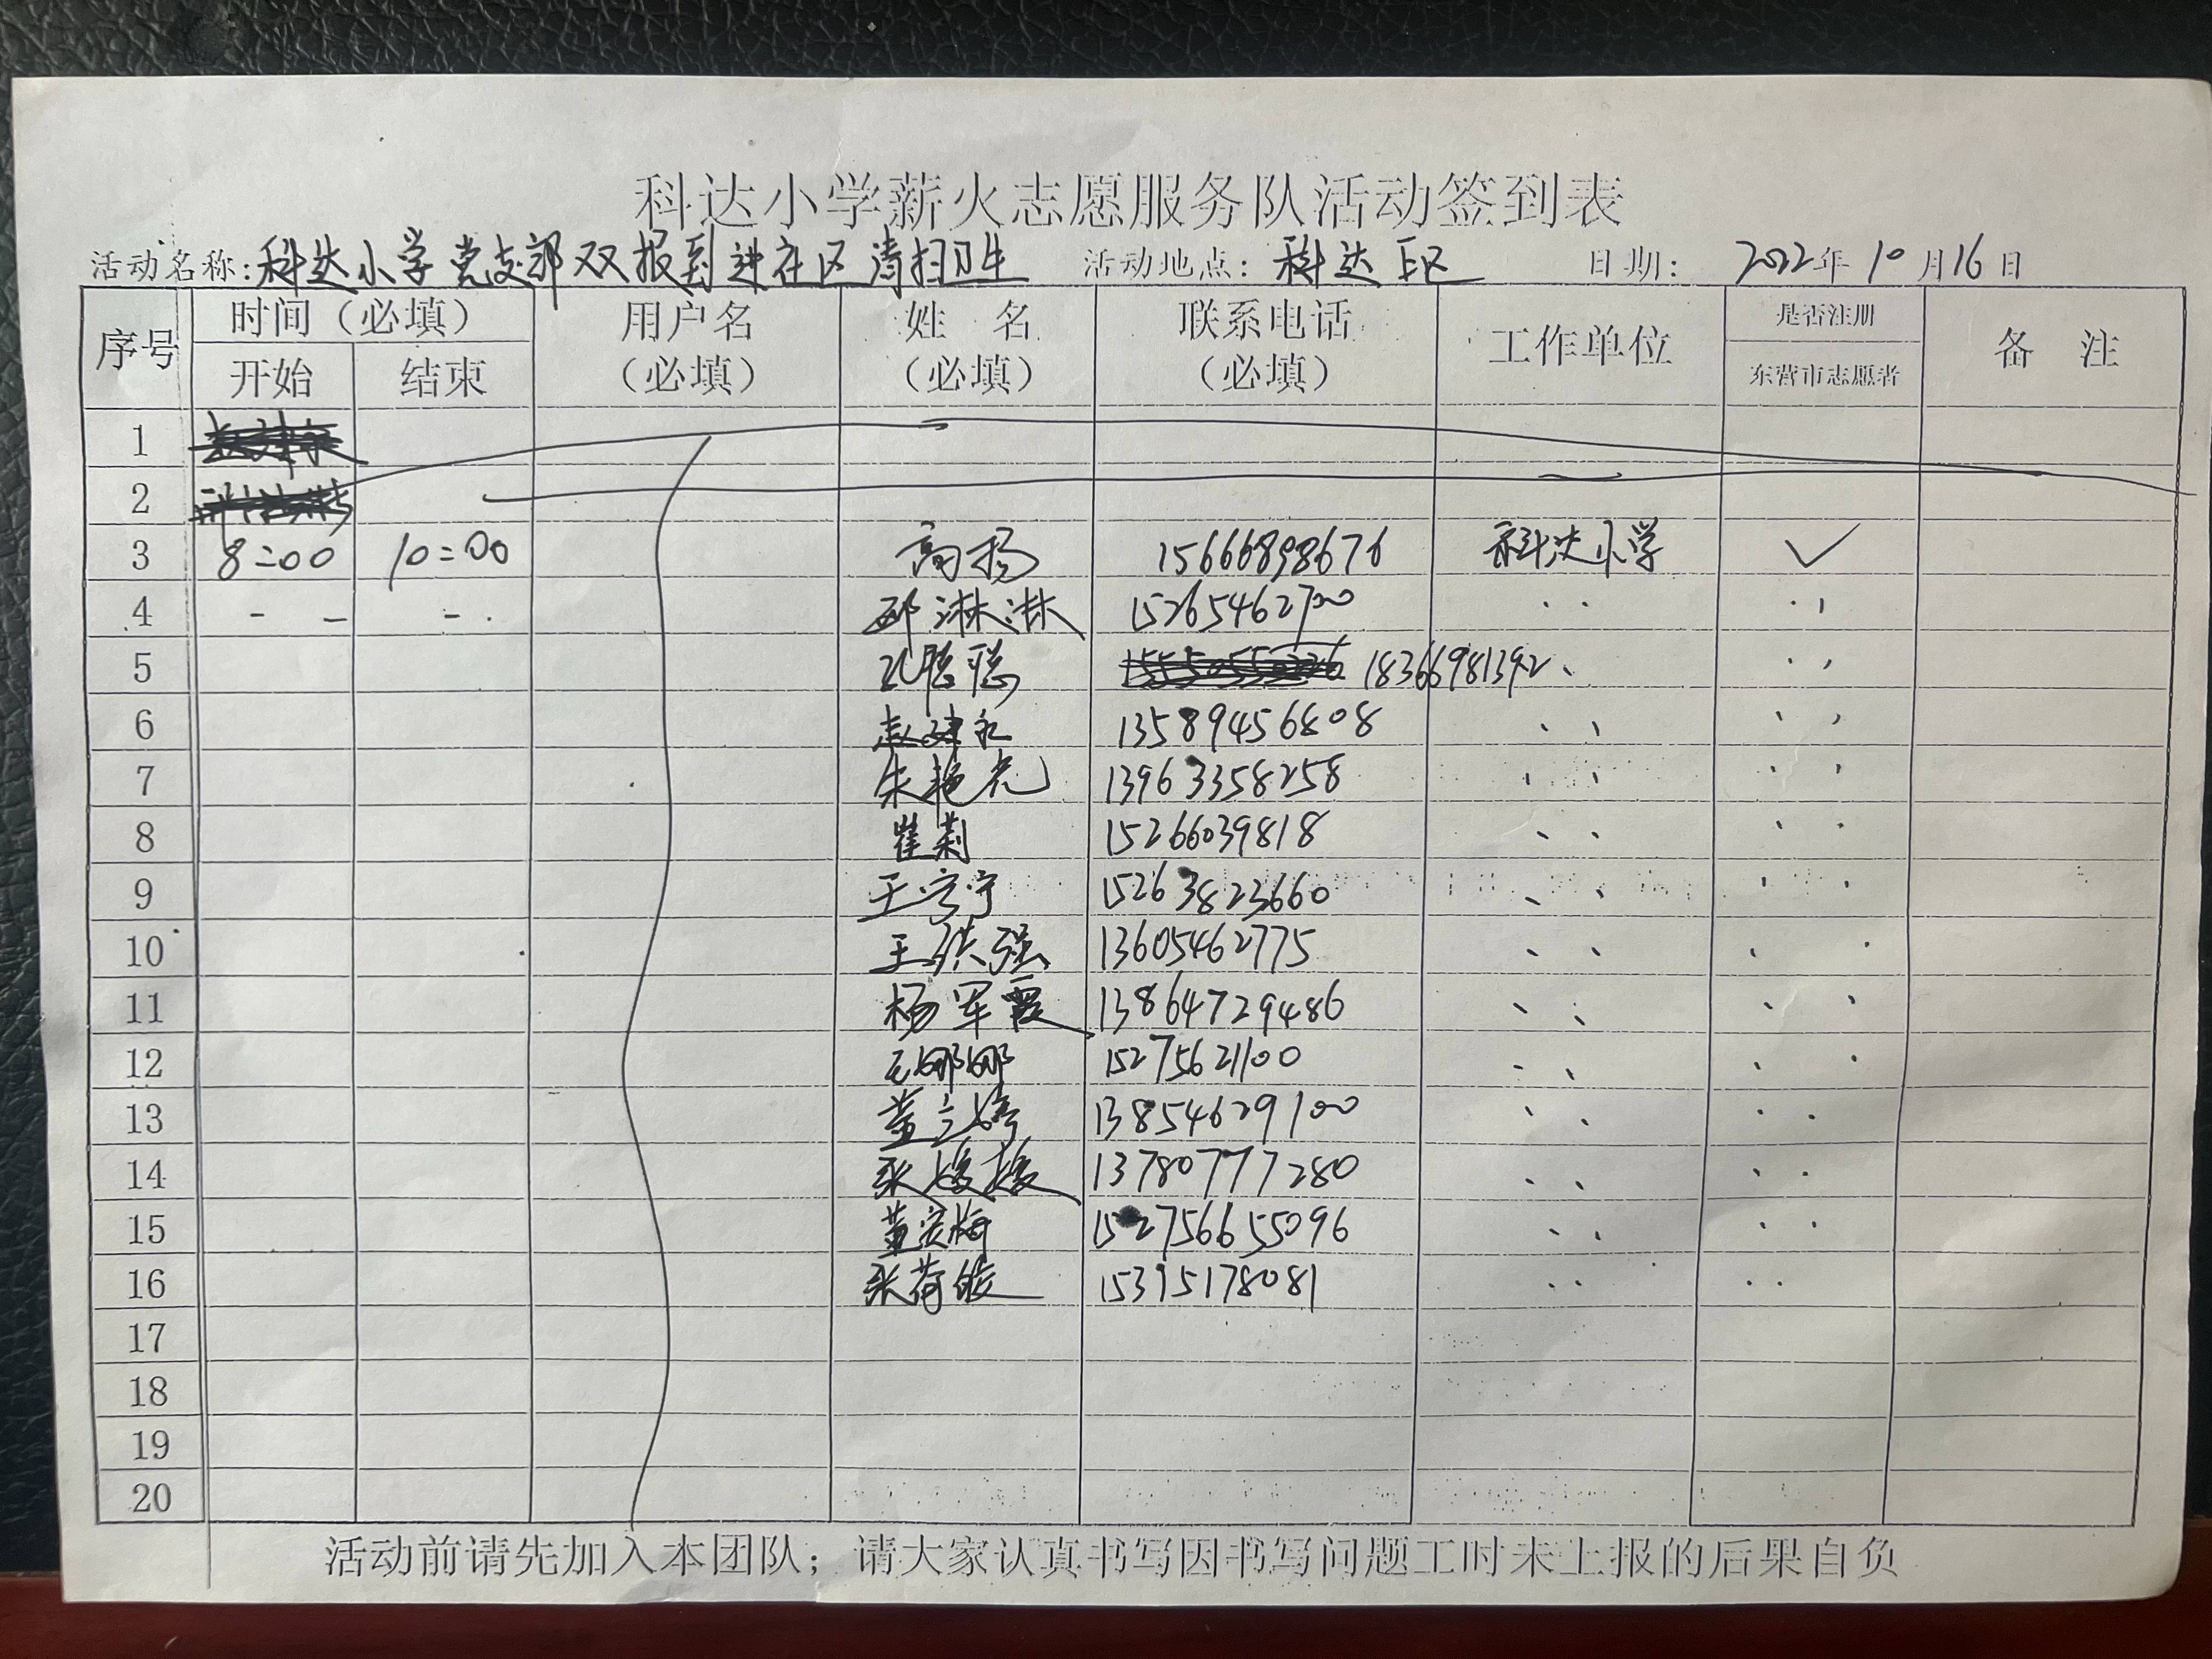 科达小学薪火志愿服务队活动签到表
活动名称:科达小学党支部双报到进社区清扫卫生 活动地点:科达E区 日期:2022年10月16日
序号 时间（必填） 用户名（必填） 姓 名（必填） 联系电话（必填） 工作单位 是否注册 东营市志愿者 备 注
开始 结束
1
2
3 8:00 10:00 高扬 15666898676 科达小学 ✓
4 邱淋淋 15265462700
5 孔聪聪 18366981392
6 赵建永 13589456808
7 朱艳光 13963358258
8 崔莉 15266039818
9 王宁宁 15263823660
10 王洪强 13605462775
11 杨军霞 13864729486
12 王娜娜 15275621100
13 董立婷 13854629100
14 张 13780777280
15 董 152756655096
16 张荷 15315178081
17
18
19
20
活动前请先加入本团队；请大家认真书写因书写问题工时未上报的后果自负